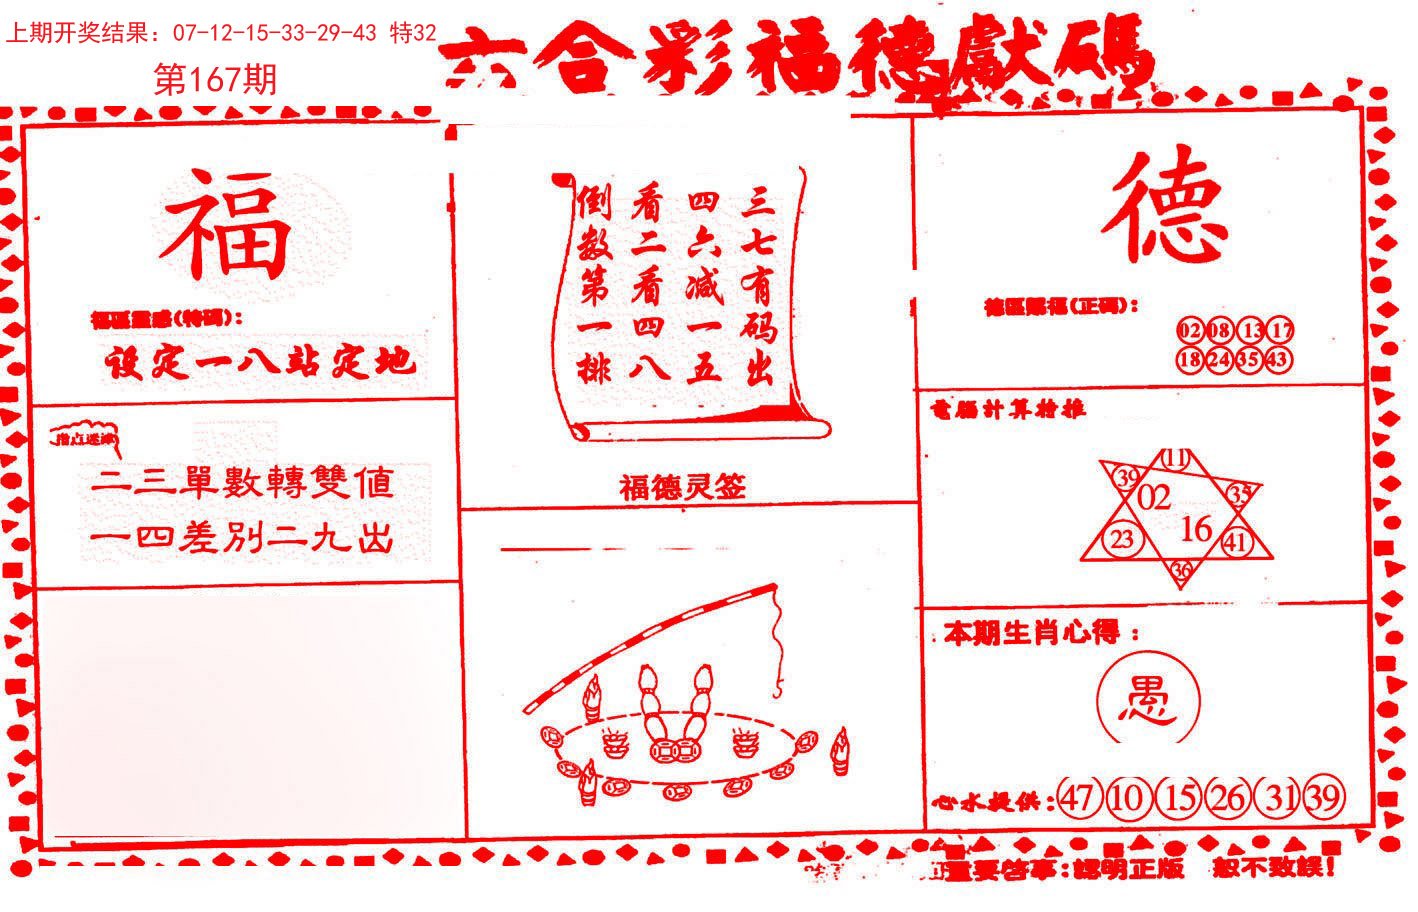 上期开奖结果：07-12-15-33-29-43 特32
第167期
六合彩福德獻碼
福
福區靈感(特碼)：
设定一八站定地
指点迷津
二三單數轉雙值
一四差別二九出
三七有码出
四六减一五
看二看四八
倒数第一排
福德灵签
德
德區賜福(正碼)：
02 08 13 17
18 24 35 43
電腦計算拾推
11
39 35
02
16
23 41
36
本期生肖心得：
愚
心水提供：47 10 15 26 31 39
重要啓事：認明正版 恕不致誤！